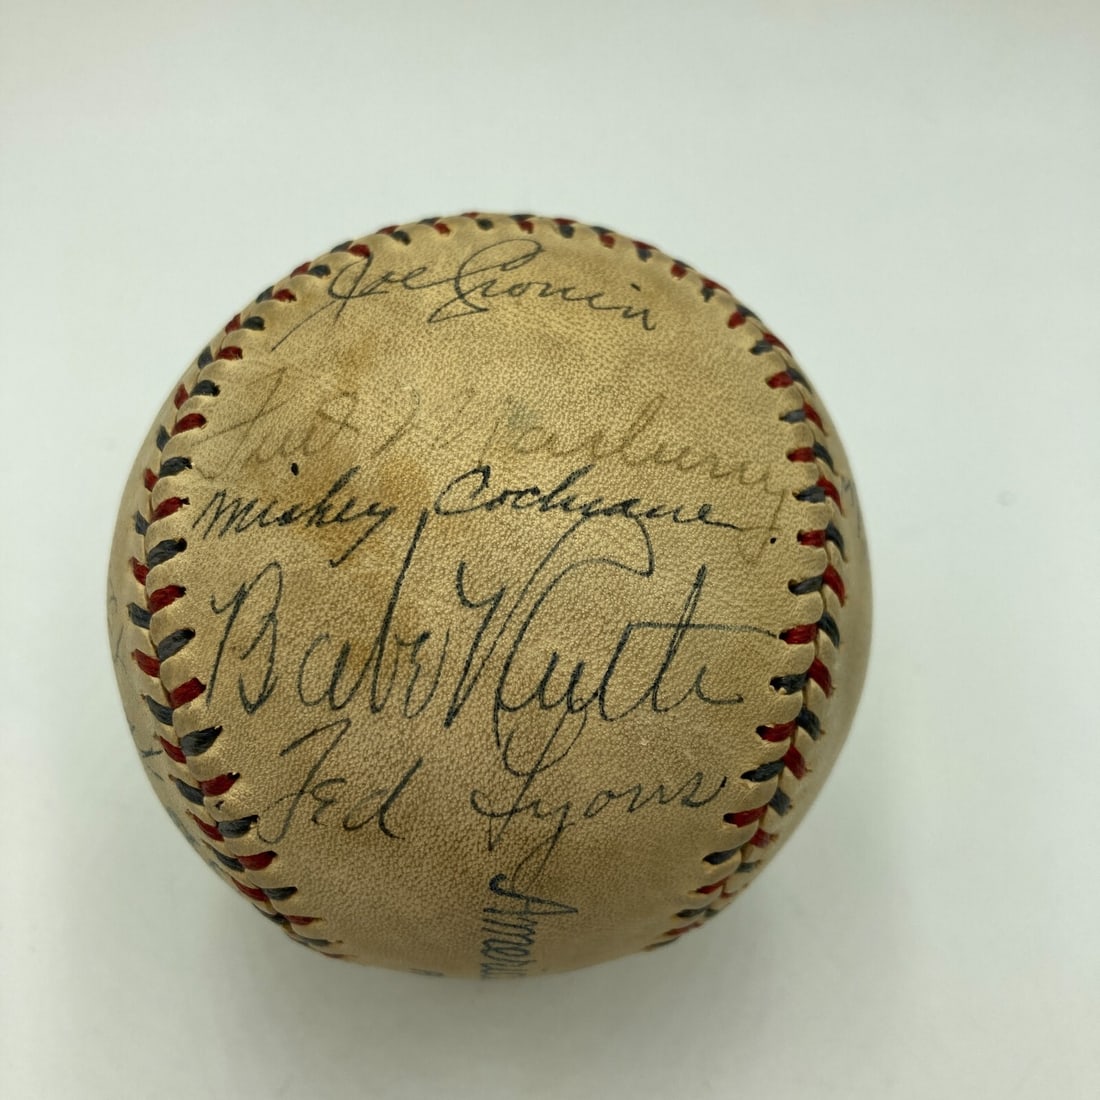 Joe Cronin
Fritz Marberry
Mickey Cochrane
Babe Ruth
Ted Lyons
Ameri